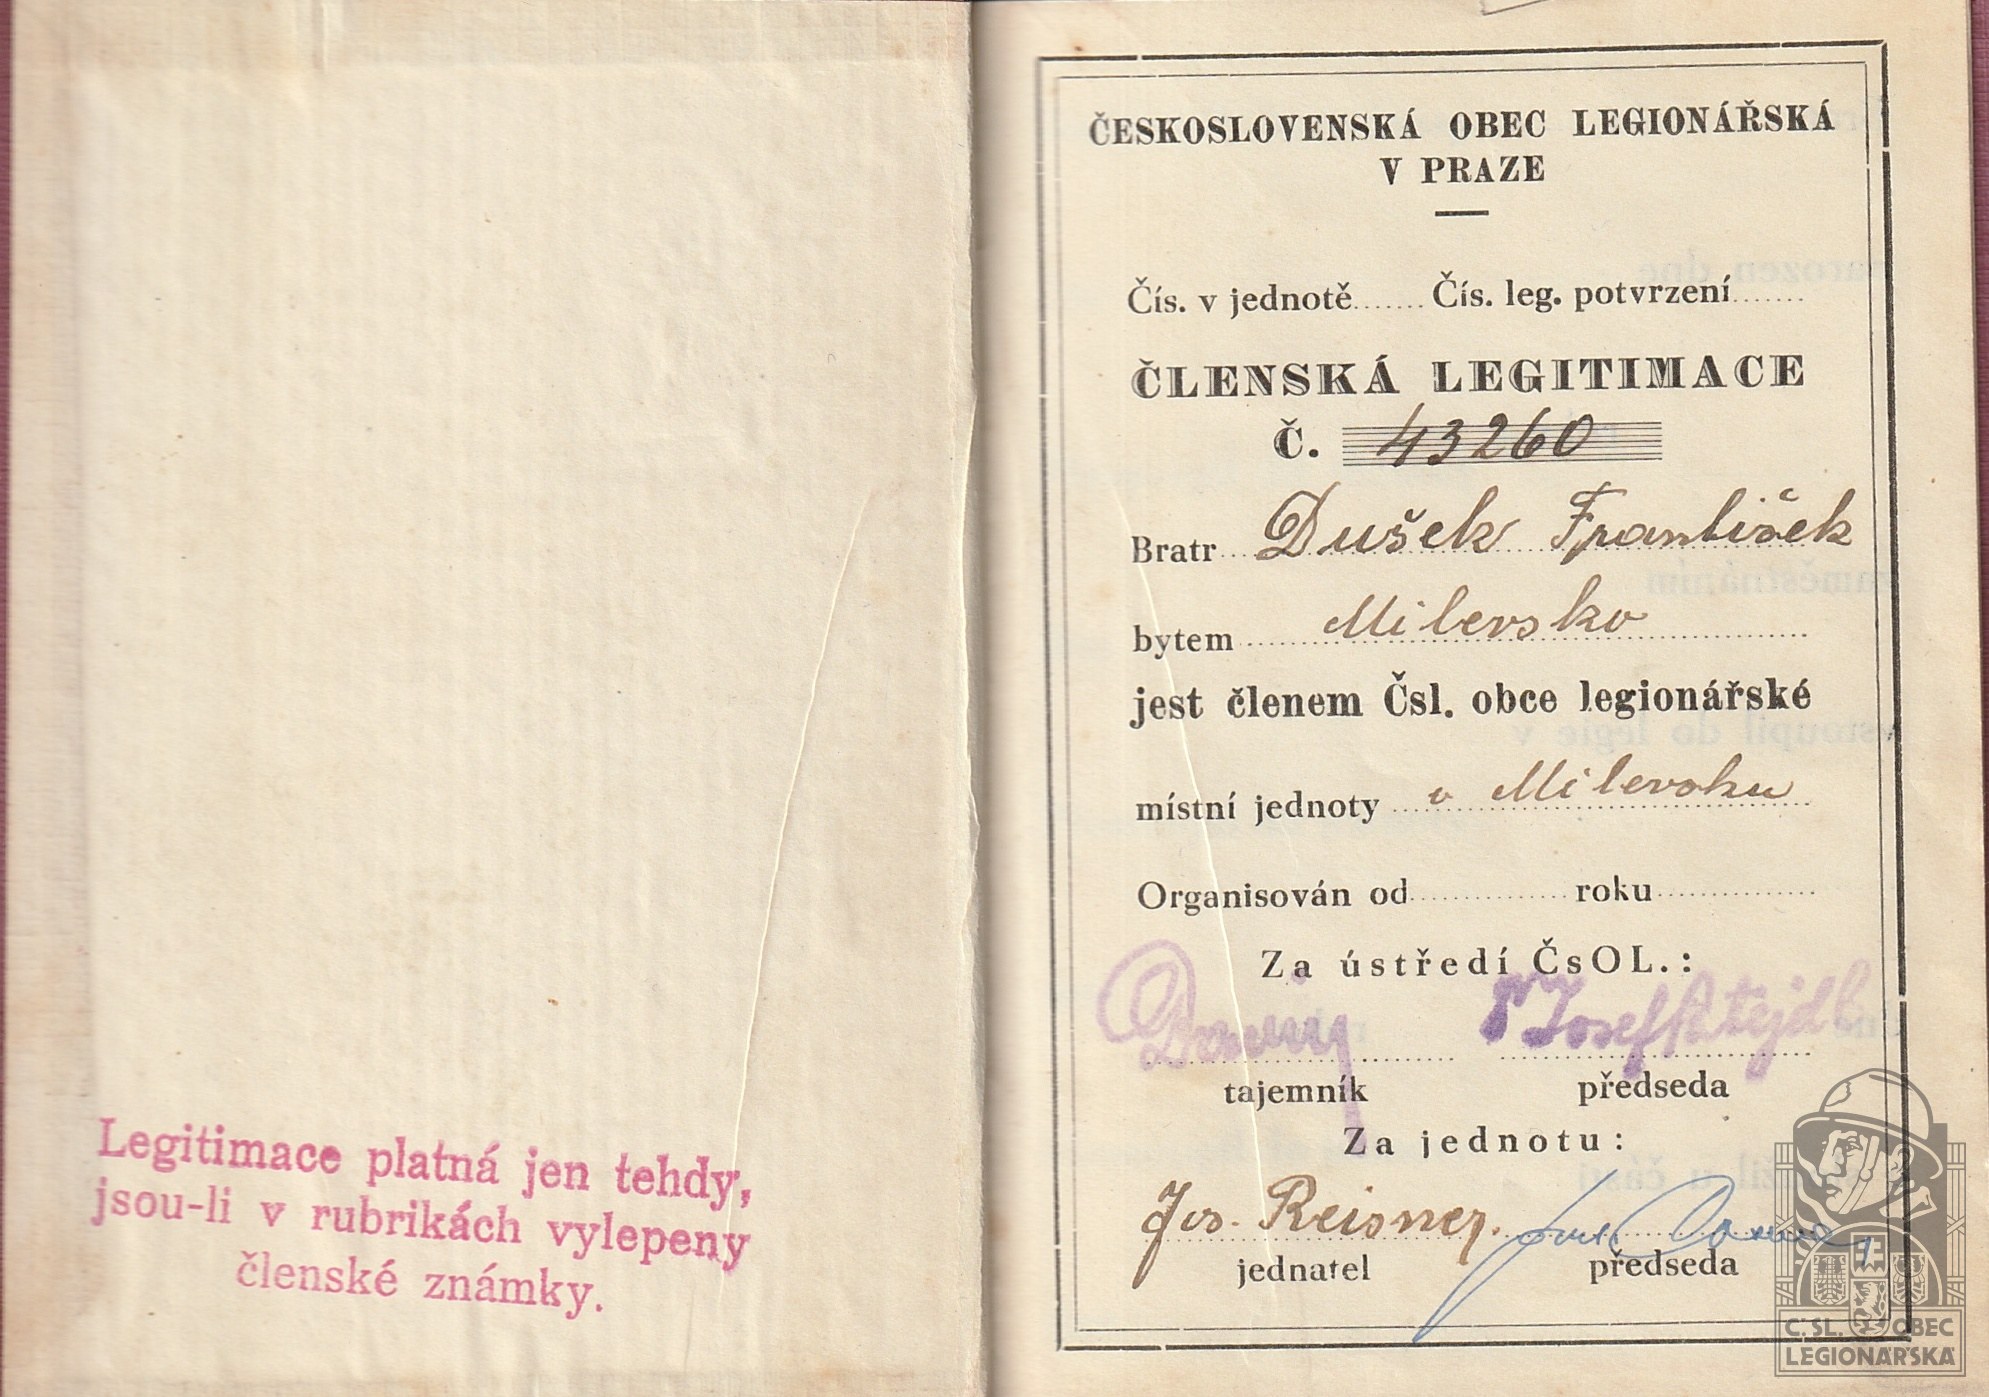 Legitimace platná jen tehdy,
jsou-li v rubrikách vylepeny
členské známky.
ČESKOSLOVENSKÁ OBEC LEGIONÁŘSKÁ
V PRAZE
Čís. v jednotě....... Čís. leg. potvrzení.......
ČLENSKÁ LEGITIMACE
Č. 43260
Bratr Dušek František
bytem Milevsko
jest členem Čsl. obce legionářské
místní jednoty v Milevsku
Organisován od.............. roku..............
Za ústředí ČsOL.:
Josef Patejdl
tajemník předseda
Za jednotu:
Jos. Reisner.
jednatel předseda
Č. SL. OBEC
LEGIONÁŘSKÁ